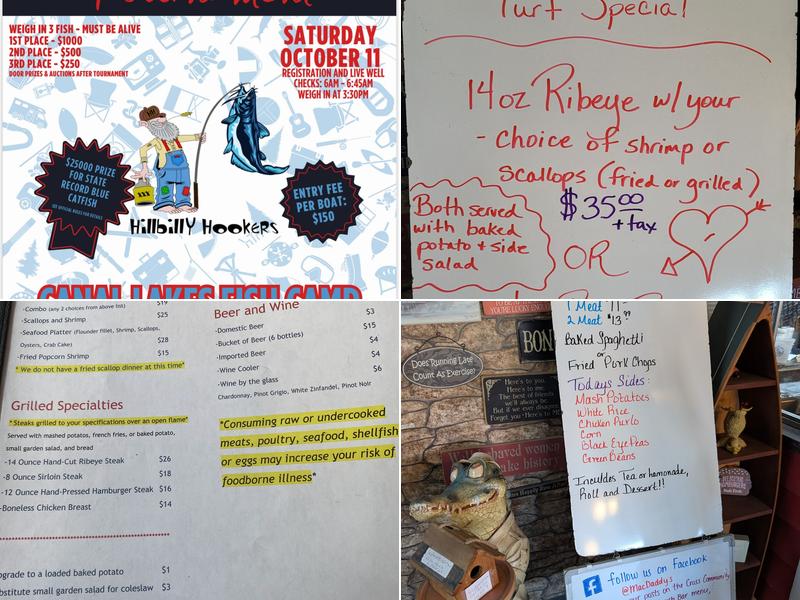 WEIGH IN 3 FISH - MUST BE ALIVE
1ST PLACE - $1000
2ND PLACE - $500
3RD PLACE - $250
DOOR PRIZES & AUCTIONS AFTER TOURNAMENT
SATURDAY
OCTOBER 11
REGISTRATION AND LIVE WELL
CHECKS: 6AM - 6:45AM
WEIGH IN AT 3:30PM
$25000 PRIZE
FOR STATE
RECORD BLUE
CATFISH
SEE OFFICIAL RULES FOR DETAILS
ENTRY FEE
PER BOAT:
$150
HillbillY HOokERs
CANAL LAKES FISH CAMP
Turf Special
14oz Ribeye w/ your
- choice of shrimp or
scallops (fried or grilled)
$35.00
+ tax
Both served
with baked
potato + side
salad
OR
-Combo (any 2 choices from above list) $19
-Scallops and Shrimp $25
-Seafood Platter (Flounder fillet, Shrimp, Scallops,
Oysters, Crab Cake) $28
-Fried Popcorn Shrimp $15
* We do not have a fried scallop dinner at this time*
Grilled Specialties
*Steaks grilled to your specifications over an open flame*
Served with mashed potatoes, french fries, or baked potato,
small garden salad, and bread
-14 Ounce Hand-Cut Ribeye Steak $26
-8 Ounce Sirloin Steak $18
-12 Ounce Hand-Pressed Hamburger Steak $16
-Boneless Chicken Breast $14
grade to a loaded baked potato $1
bstitute small garden salad for coleslaw $3
Beer and Wine
-Domestic Beer $3
-Bucket of Beer (6 bottles) $15
-Imported Beer $4
-Wine Cooler $4
-Wine by the glass $6
Chardonnay, Pinot Grigio, White Zinfandel, Pinot Noir
*Consuming raw or undercooked
meats, poultry, seafood, shellfish
or eggs may increase your risk of
foodborne illness*
1 Meat $11
2 Meat $13.99
Baked Spaghetti
or
Fried Pork Chops
Todays Sides:
Mash Potatoes
White Rice
Chicken Purlo
Corn
Black Eye Peas
Green Beans
Includes Tea or homemade,
Roll and Dessert!!
BON
Does Running Late
Count As Exercise?
Here's to you,
Here's to me,
The best of friends
we'll always be.
But if we ever disagree
Forget you - Here's to ME
follow us on Facebook
@MacDaddy's
our posts on the Cross Community